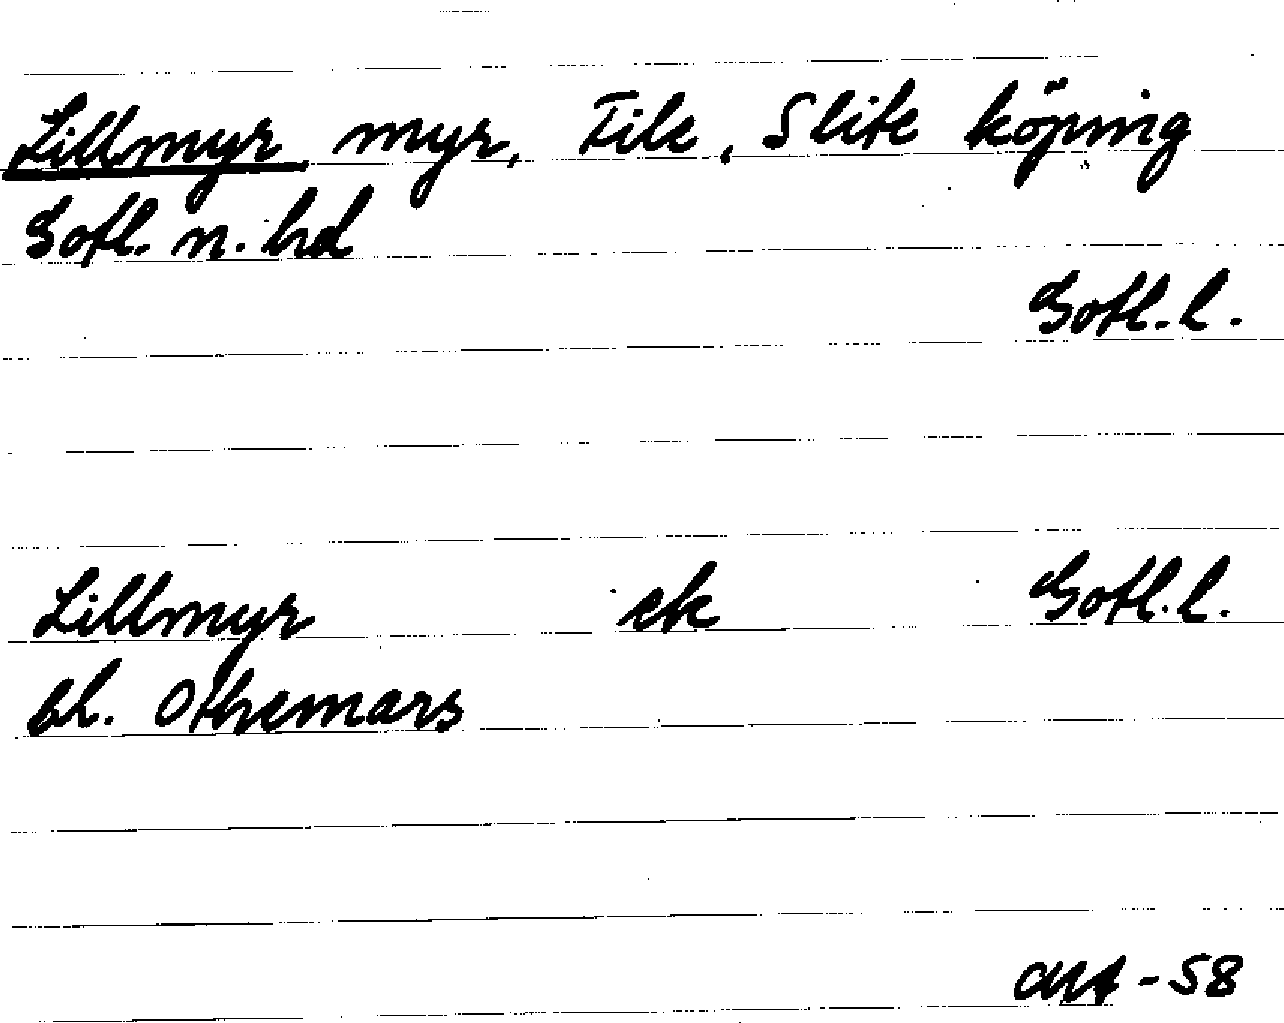 Lillmyr, myr, File, Slite köping
Gotl. n. hd
Gotl. l.
Lillmyr ek Gotl. l.
bl. Othemars
-58